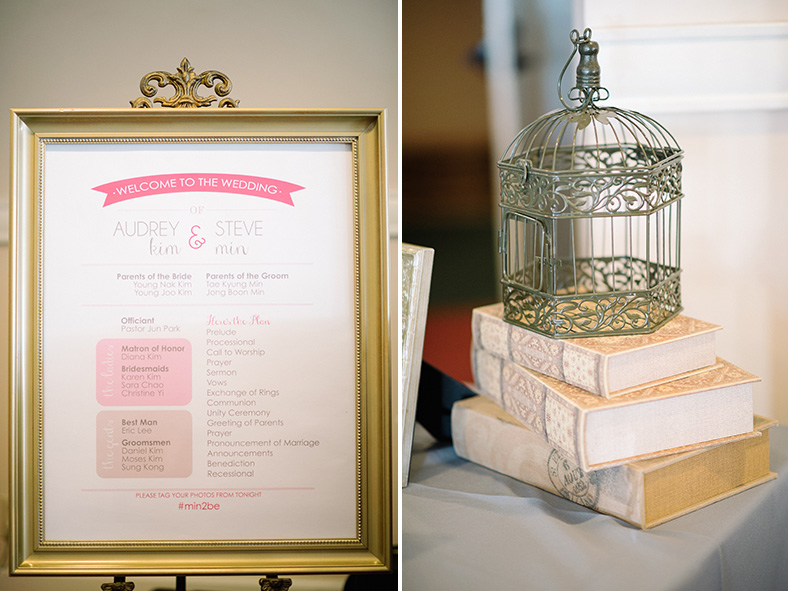 WELCOME TO THE WEDDING
OF
AUDREY & STEVE
kim min
Parents of the Bride
Young Nak Kim
Young Joo Kim
Parents of the Groom
Tae Kyung Min
Jong Boon Min
Officiant
Pastor Jun Park
Matron of Honor
Diana Kim
Bridesmaids
Karen Kim
Sara Chao
Christine Yi
Best Man
Eric Lee
Groomsmen
Daniel Kim
Moses Kim
Sung Kong
Here's the Plan
Prelude
Processional
Call to Worship
Prayer
Sermon
Vows
Exchange of Rings
Communion
Unity Ceremony
Greeting of Parents
Prayer
Pronouncement of Marriage
Announcements
Benediction
Recessional
PLEASE TAG YOUR PHOTOS FROM TONIGHT
#min2be